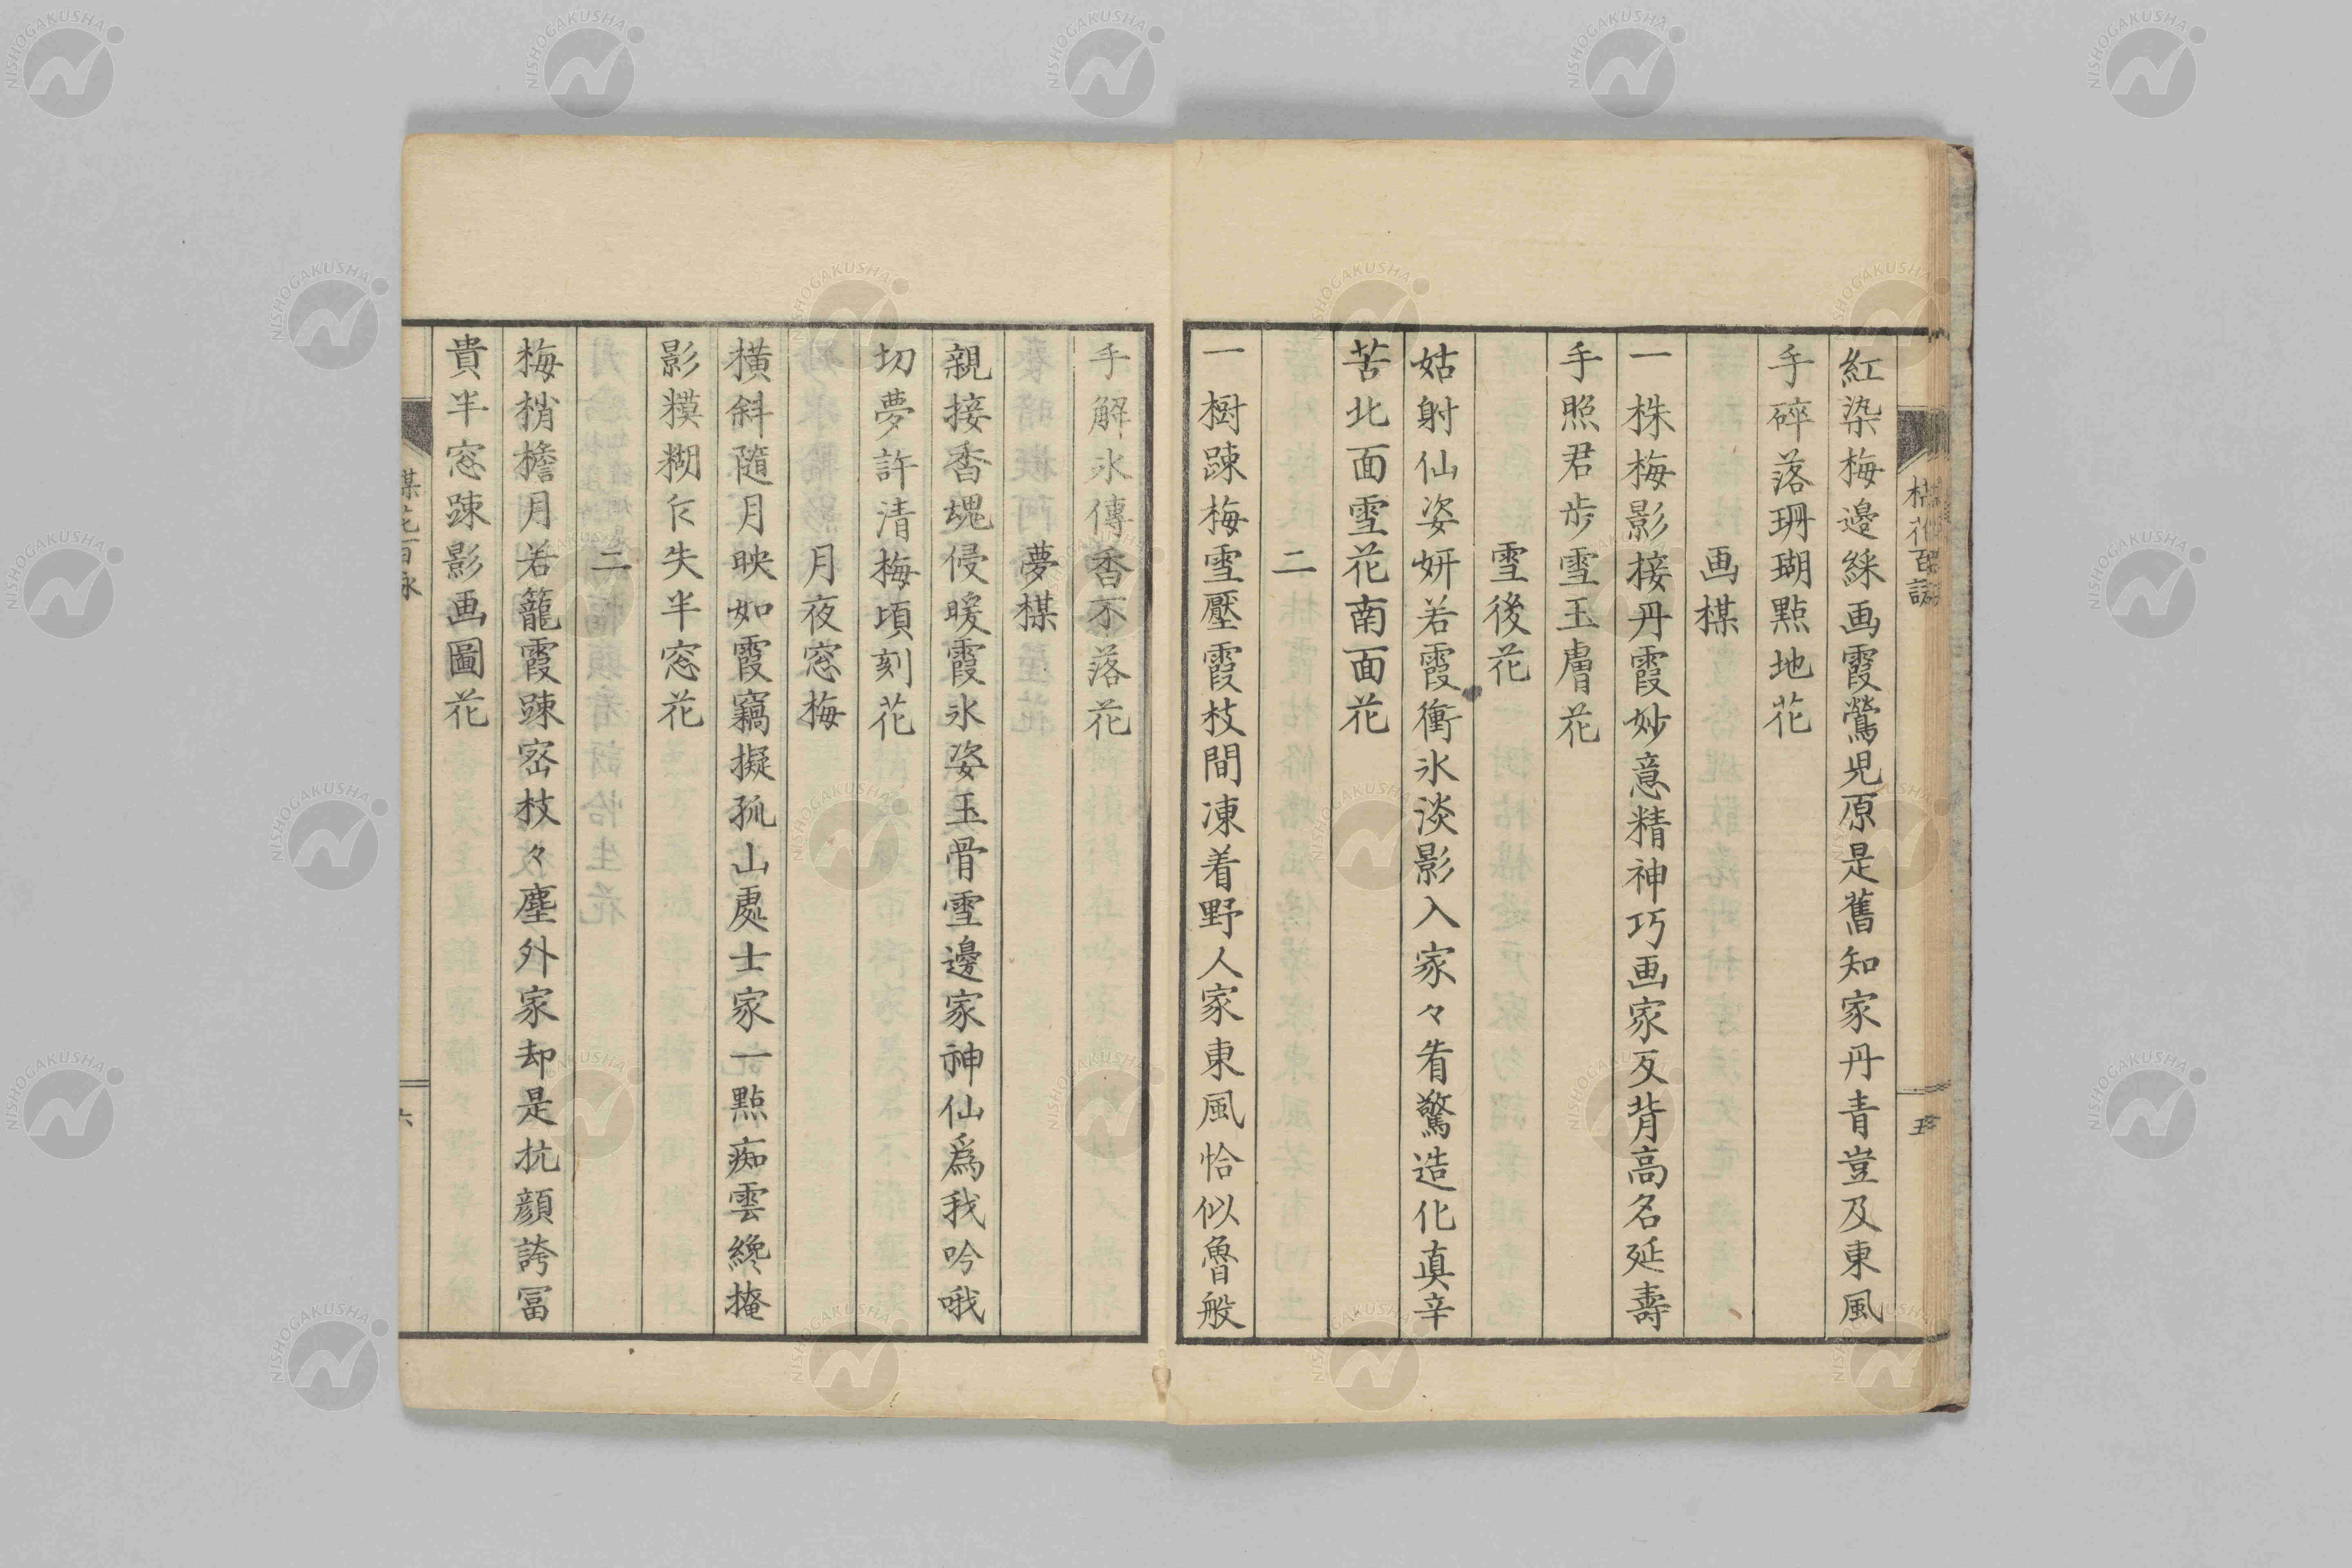 紅染梅邊綵画霞鶯児原是舊知家丹青豈及東風
手碎落珊瑚點地花
画楳
一株梅影接丹霞妙意精神巧画家反背高名延壽
手照君步雪玉膚花
雪後花
姑射仙姿妍若霞衝氷淡影入家々看驚造化真辛
苦北面雪花南面花
二
一樹踈梅雪壓霞枝間凍着野人家東風恰似魯般
手解氷傳香不落花
夢楳
親接香魂侵暖霞氷姿玉骨雪邊家神仙爲我吟哦
切夢許清梅頃刻花
月夜窓梅
横斜隨月映如霞竊擬孤山處士家一點痴雲纔掩
影糢糊乍失半窓花
二
梅梢檐月若籠霞踈宻枝々塵外家却是抗顔誇冨
貴半窓踈影画圖花
楳花百詠
五
六
NISHOGAKUSHA